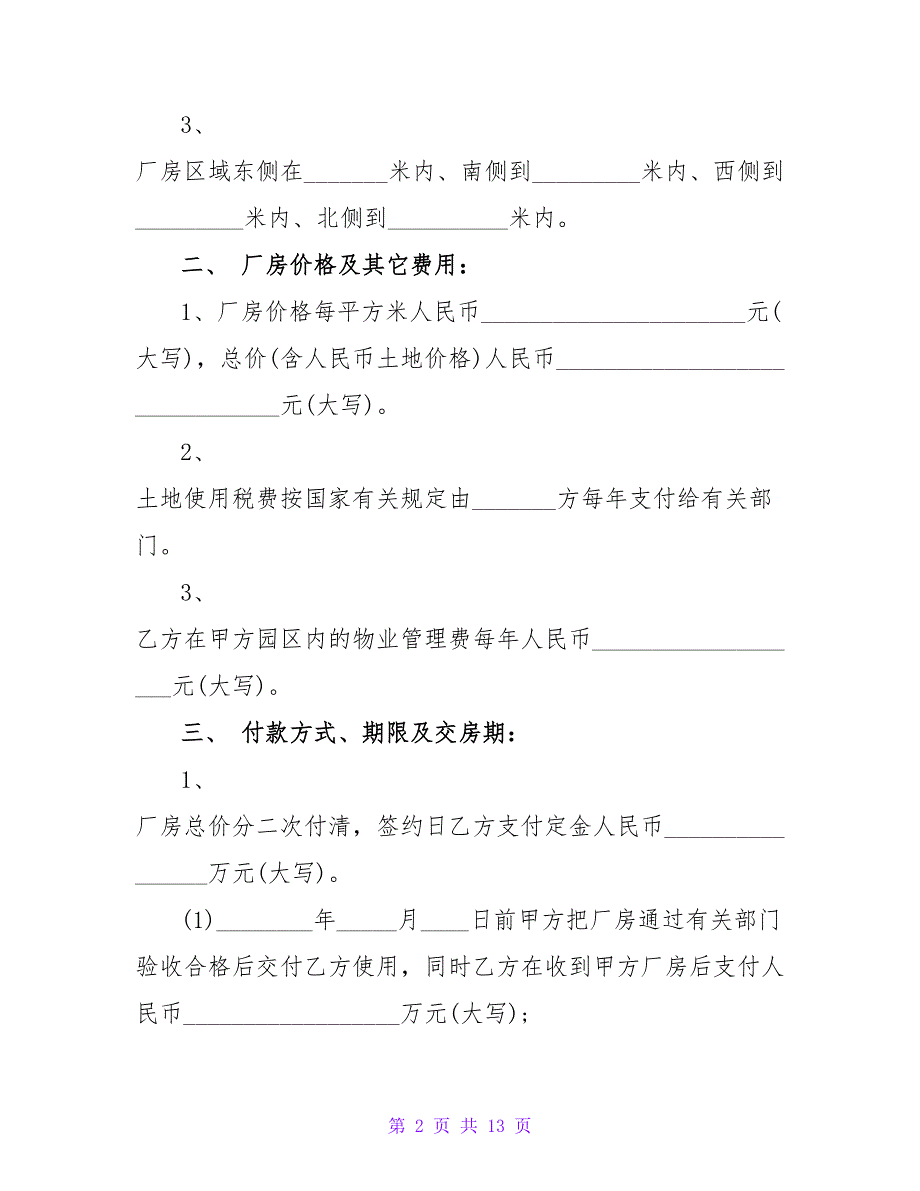 3、
厂房区域东侧在_______米内、南侧到_________米内、西侧到
_________米内、北侧到__________米内。
二、 厂房价格及其它费用：
1、厂房价格每平方米人民币______________________元(
大写)，总价(含人民币土地价格)人民币___________________
____________元(大写)。
2、
土地使用税费按国家有关规定由_______方每年支付给有关部
门。
3、
乙方在甲方园区内的物业管理费每年人民币________________
___元(大写)。
三、 付款方式、期限及交房期：
1、
厂房总价分二次付清，签约日乙方支付定金人民币__________
______万元(大写)。
(1)________年_____月____日前甲方把厂房通过有关部门
验收合格后交付乙方使用，同时乙方在收到甲方厂房后支付人
民币__________________万元(大写);
第 2 页 共 13 页